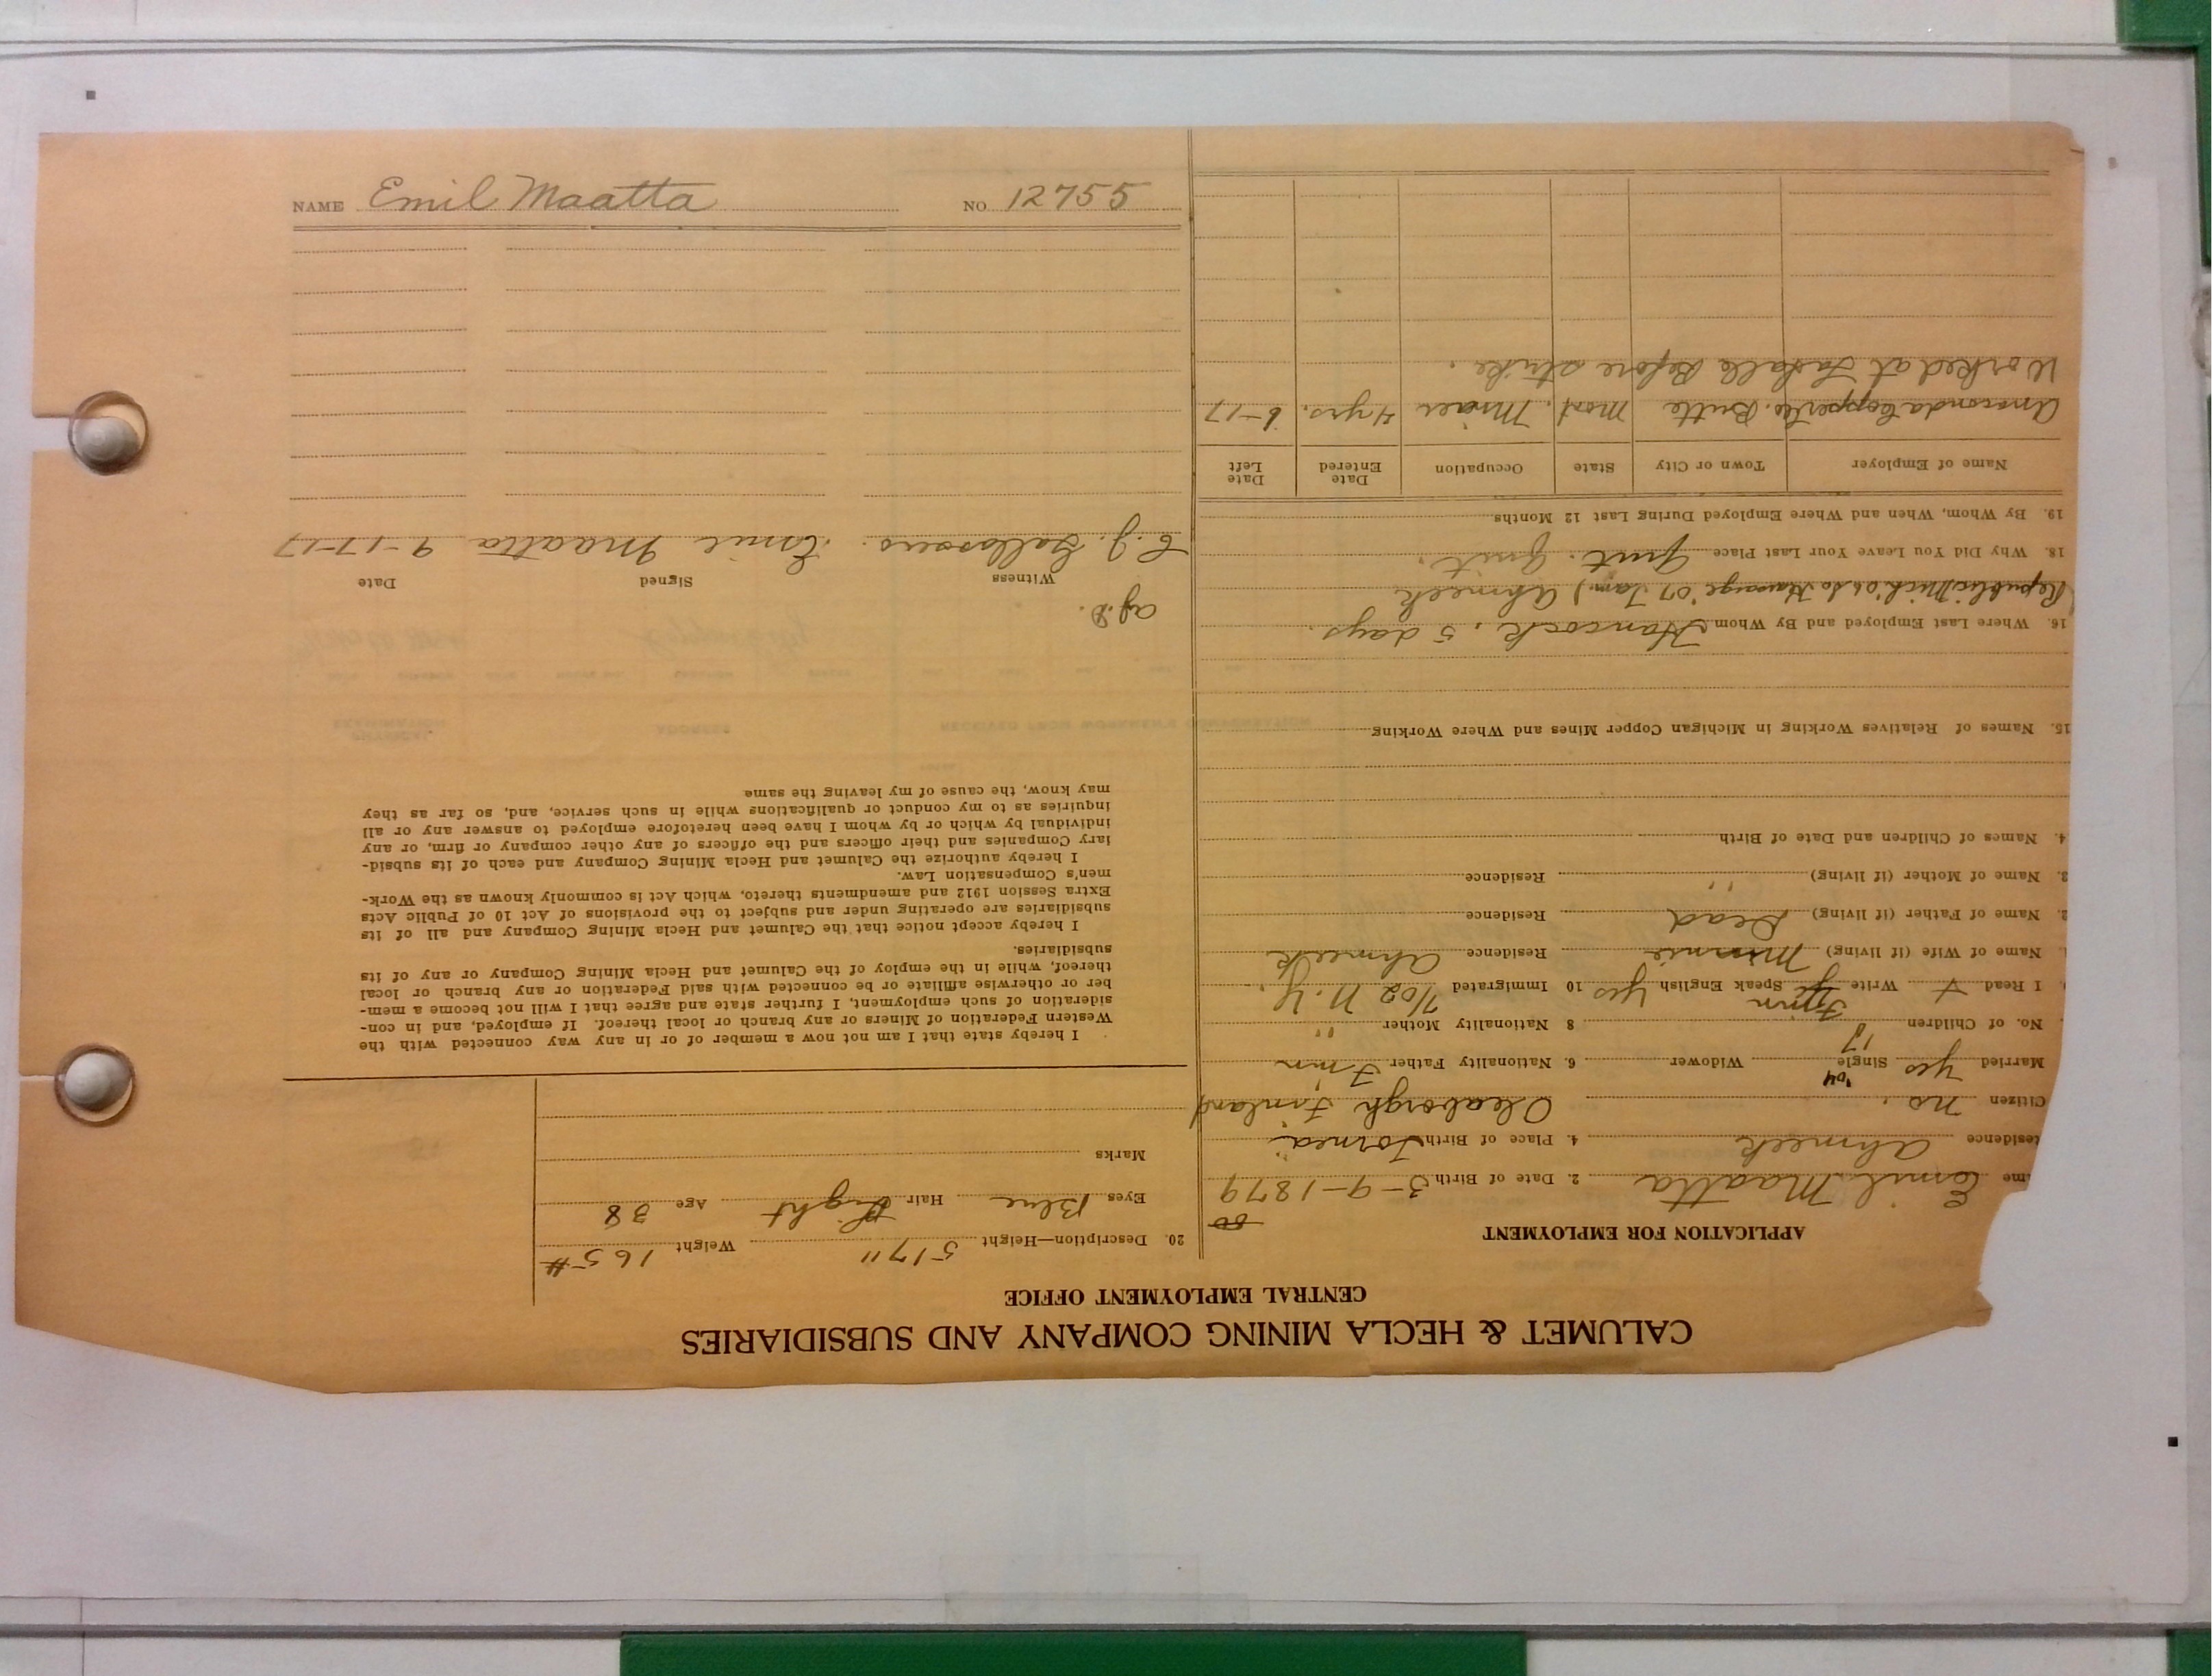 CALUMET & HECLA MINING COMPANY AND SUBSIDIARIES
CENTRAL EMPLOYMENT OFFICE
APPLICATION FOR EMPLOYMENT
me Emil Maatta 2. Date of Birth 3-9-1879
esidence Ahmeek 4. Place of Birth Tornea
Citizen no. '04 Oleaborgh Finland
Married yes Single Widower 6. Nationality Father Finn
No. of Children 8 Nationality Mother "
I Read Write Finn Speak English yes 10 Immigrated 7/02 N.Y.
Name of Wife (if living) Minnie Residence Ahmeek
2. Name of Father (if living) Dead Residence
3. Name of Mother (if living) " Residence
4. Names of Children and Date of Birth
15. Names of Relatives Working in Michigan Copper Mines and Where Working
16. Where Last Employed and By Whom Hancock, 5 days.
Republic Mich '07 Ahmeek
18. Why Did You Leave Your Last Place Quit. Quit.
19. By Whom, When and Where Employed During Last 12 Months
Name of Employer Town or City State Occupation Date Entered Date Left
Anaconda Copper Co. Butte Mont. Miner 4 yrs. 6-17
Worked at LaSalle Before strike.
20. Description—Height 5'7" Weight 165#
Eyes Blue Hair Light Age 38
Marks
I hereby state that I am not now a member of or in any way connected with the
Western Federation of Miners or any branch or local thereof. If employed, and in con-
sideration of such employment, I further state and agree that I will not become a mem-
ber or otherwise affiliate or be connected with said Federation or any branch or local
thereof, while in the employ of the Calumet and Hecla Mining Company or any of its
subsidiaries.
I hereby accept notice that the Calumet and Hecla Mining Company and all of its
subsidiaries are operating under and subject to the provisions of Act 10 of Public Acts
Extra Session 1912 and amendments thereto, which Act is commonly known as the Work-
men's Compensation Law.
I hereby authorize the Calumet and Hecla Mining Company and each of its subsid-
iary Companies and their officers and the officers of any other company or firm, or any
individual by which or by whom I have been heretofore employed to answer any or all
inquiries as to my conduct or qualifications while in such service, and, so far as they
may know, the cause of my leaving the same
Witness Signed Date
Emil Maatta 9-17-17
NAME Emil Maatta NO. 12755